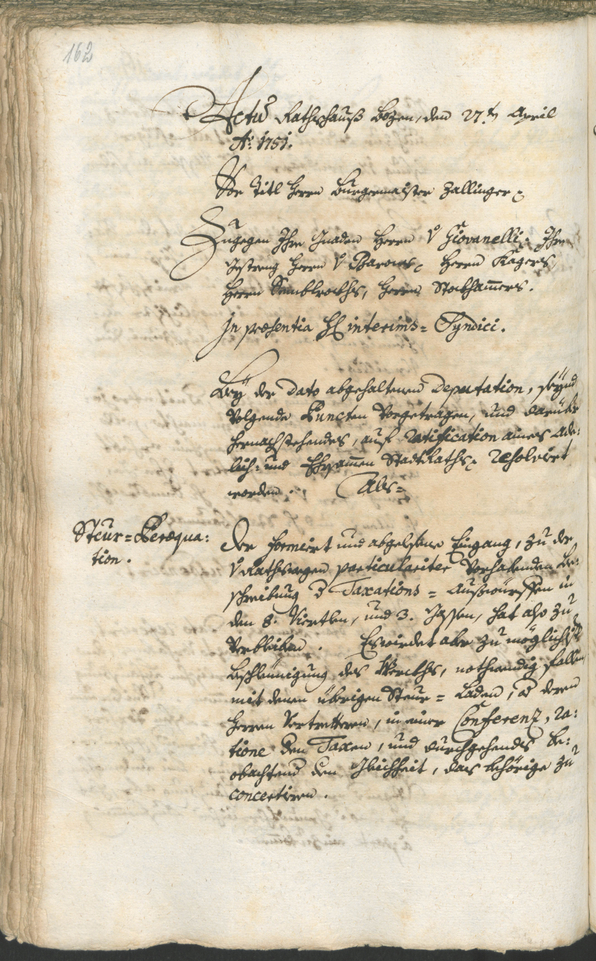 162
Actũ Rathshauß Bozen, den 27.t. April
Aõ: 1751.
Vor Titl Herrn Burgermaister Zallinger
Zugegen Ihro Gnaden Herrn V Giovanelli, Ihro
Gestreng Herrn V Herrn Kägers
Herrn Herrn Stockhamers.
In præsentia H interims= Syndici.
Bey der Dato abgehaltenen Deputation, seynd
Volgende Puncten Vorgetragen, und darüber
hernachstehendes, auf Ratification aines Ade-
lich- und Ehrsamen StadtRaths Resolvirt
worden. Als=
Steur=Peræqua:
tion.
Der formiert und abgelesene Eingang, zu der
V Rathswegen particulariter Vorhabenden be-
schreibung Taxations= in
den 8. Viertlen, und 3. Gassen, hat also zu
Verbleiben. Es wirdet aber zu möglichister
beschleinigung des Werckhs, nothwendig fallen
mit denen übrigen Steur= Laden, deren
Herren Vertrettern, in einer Conferenz, Ra:
tione den Taxen, und durchgehends be:
obachtend den Gleichheit, das behörige zu
concertiren.